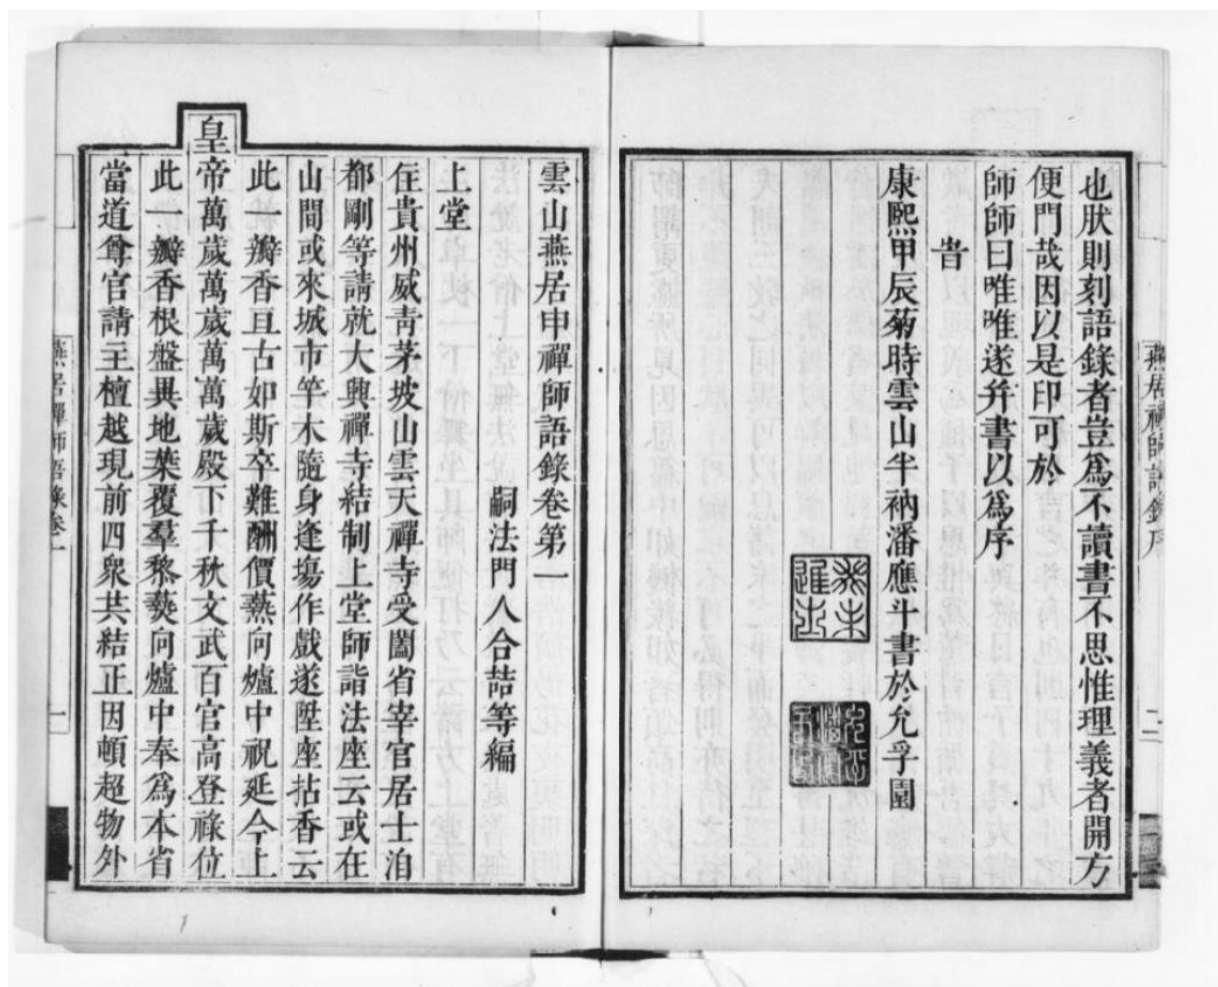 也狀則刻語錄者豈爲不讀書不思惟理義者開方
便門哉因以是印可於
師師曰唯唯遂幷書以爲序
旹
康熙甲辰菊時雲山半衲潘應斗書於允孚園
燕居禪師語錄序
二
雲山燕居申禪師語錄卷第一
嗣法門人合喆等編
上堂
住貴州威青茅坡山雲天禪寺受闔省宰官居士洎
都剛等請就大興禪寺結制上堂師詣法座云或在
山間或來城市竿木隨身逢塲作戲遂陞座拈香云
此一瓣香亘古如斯卒難酬價爇向爐中祝延今上
皇帝萬歲萬萬歲萬萬歲殿下千秋文武百官高登祿位
此一瓣香根盤異地葉覆羣黎爇向爐中奉爲本省
當道尊官請主檀越現前四衆共結正因頓超物外
燕居禪師語錄卷一
一